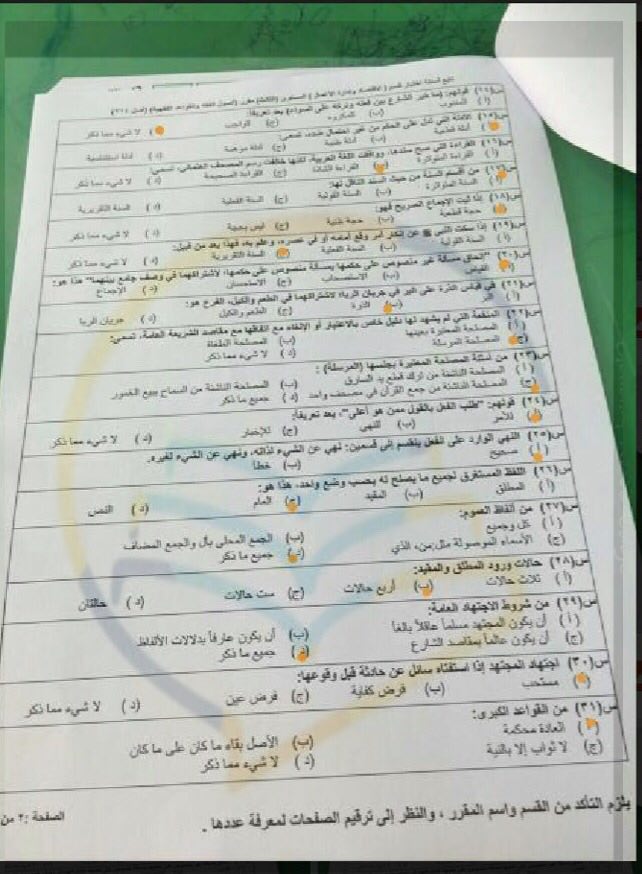 تابع أسئلة اختبار لقسم ( الاقتصاد وإدارة الأعمال ) المستوى (الثالث) مقرر (أصول الفقه والقواعد الفقهية)
س(١٤) قولهم: (ما خير الشارع بين فعله وتركه على السواء) يعد تعريفاً:
( أ ) المندوب (ب) المكروه (ج) الواجب (د) لا شيء مما ذكر
س(١٥) الأدلة التي تدل على الحكم من غير احتمال ضده، تسمى:
( أ ) أدلة قطعية (ب) أدلة ظنية (ج) أدلة مذهبية (د) أدلة استئناسية
س(١٦) القراءة التي صح سندها، ووافقت اللغة العربية، لكنها خالفت رسم المصحف العثماني، تسمى:
( أ ) القراءة المتواترة (ب) القراءة الشاذة (ج) القراءة الصحيحة (د) لا شيء مما ذكر
س(١٧) من أقسام السنة من حيث السند الناقل لها:
( أ ) السنة المتواترة (ب) السنة القولية (ج) السنة الفعلية (د) السنة التقريرية
س(١٨) إذا ثبت الإجماع الصريح فهو:
( أ ) حجة قطعية (ب) حجة ظنية (ج) ليس بحجة (د) لا شيء مما ذكر
س(١٩) إذا سكت النبي ﷺ عن إنكار أمر وقع أمامه أو في عصره، وعلم به، فهذا يعد من قبيل:
( أ ) السنة القولية (ب) السنة الفعلية (ج) السنة التقريرية (د) لا شيء مما ذكر
س(٢٠) "إلحاق مسألة غير منصوص على حكمها بمسألة منصوص على حكمها، لاشتراكهما في وصف جامع بينهما" هذا هو:
( أ ) القياس (ب) الاستصحاب (ج) الاستحسان (د) الإجماع
س(٢١) في قياس الذرة على البر في جريان الرباء لاشتراكهما في الطعم والكيل، الفرع هو:
( أ ) البر (ب) الذرة (ج) الطعم والكيل (د) جريان الربا
س(٢٢) المنفعة التي لم يشهد لها دليل خاص بالاعتبار أو الإلغاء مع اتفاقها مع مقاصد الشريعة العامة، تسمى:
( أ ) المصلحة المعتبرة بعينها (ب) المصلحة الملغاة
(ج) المصلحة المرسلة (د) لا شيء مما ذكر
س(٢٣) من أمثلة المصلحة المعتبرة بجنسها (المرسلة) :
( أ ) المصلحة الناشئة من ترك قطع يد السارق (ب) المصلحة الناشئة من السماح ببيع الخمور
(ج) المصلحة الناشئة من جمع القرآن في مصحف واحد (د) جميع ما ذكر
س(٢٤) قولهم: "طلب الفعل بالقول ممن هو أعلى"، يعد تعريفاً:
( أ ) للأمر (ب) للنهي (ج) للإخبار (د) لا شيء مما ذكر
س(٢٥) النهي الوارد على الفعل ينقسم إلى قسمين: نهي عن الشيء لذاته، ونهي عن الشيء لغيره.
( أ ) صحيح (ب) خطأ
س(٢٦) اللفظ المستغرق لجميع ما يصلح له بحسب وضع واحد، هذا هو:
( أ ) المطلق (ب) المقيد (ج) العام (د) النص
س(٢٧) من ألفاظ العموم:
( أ ) كل وجميع (ب) الجمع المحلى بأل والجمع المضاف
(ج) الأسماء الموصولة مثل:من، الذي (د) جميع ما ذكر
س(٢٨) حالات ورود المطلق والمقيد:
( أ ) ثلاث حالات (ب) أربع حالات (ج) ست حالات (د) حالتان
س(٢٩) من شروط الاجتهاد العامة:
( أ ) أن يكون المجتهد مسلماً عاقلاً بالغاً (ب) أن يكون عارفاً بدلالات الألفاظ
(ج) أن يكون عالماً بمقاصد الشارع (د) جميع ما ذكر
س(٣٠) اجتهاد المجتهد إذا استفتاه سائل عن حادثة قبل وقوعها:
( أ ) مستحب (ب) فرض كفاية (ج) فرض عين (د) لا شيء مما ذكر
س(٣١) من القواعد الكبرى:
( أ ) العادة محكمة (ب) الأصل بقاء ما كان على ما كان
(ج) لا ثواب إلا بالنية (د) لا شيء مما ذكر
يلزم التأكد من القسم واسم المقرر ، والنظر إلى ترقيم الصفحات لمعرفة عددها .
الصفحة :٢ من